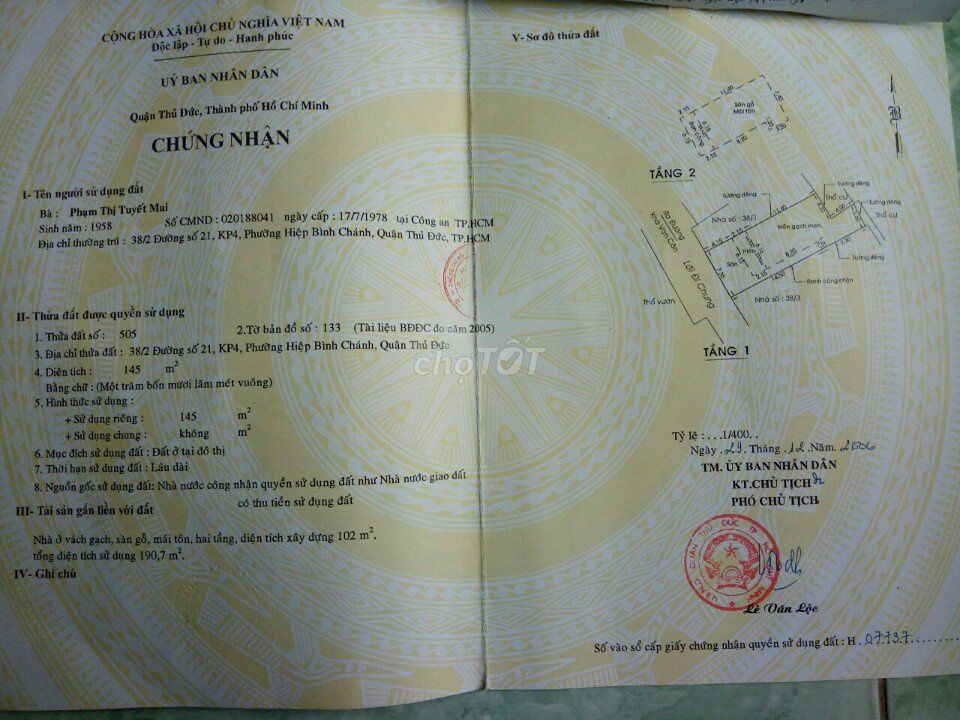 CỘNG HÒA XÃ HỘI CHỦ NGHĨA VIỆT NAM
Độc lập - Tự do - Hạnh phúc
UỶ BAN NHÂN DÂN
Quận Thủ Đức, Thành phố Hồ Chí Minh
CHỨNG NHẬN
I- Tên người sử dụng đất
Bà : Phạm Thị Tuyết Mai
Sinh năm : 1958 Số CMND : 020188041 ngày cấp : 17/7/1978 tại Công an TP.HCM
Địa chỉ thường trú : 38/2 Đường số 21, KP4, Phường Hiệp Bình Chánh, Quận Thủ Đức, TP.HCM
II- Thửa đất được quyền sử dụng
1. Thửa đất số : 505 2.Tờ bản đồ số : 133 (Tài liệu BĐĐC đo năm 2005)
3. Địa chỉ thửa đất : 38/2 Đường số 21, KP4, Phường Hiệp Bình Chánh, Quận Thủ Đức
4. Diện tích : 145 m2
Bằng chữ : (Một trăm bốn mươi lăm mét vuông)
5. Hình thức sử dụng :
+ Sử dụng riêng : 145 m2
+ Sử dụng chung : không m2
6. Mục đích sử dụng đất : Đất ở tại đô thị
7. Thời hạn sử dụng đất : Lâu dài
8. Nguồn gốc sử dụng đất: Nhà nước công nhận quyền sử dụng đất như Nhà nước giao đất
có thu tiền sử dụng đất
III- Tài sản gắn liền với đất
Nhà ở vách gạch, sàn gỗ, mái tôn, hai tầng, diện tích xây dựng 102 m2,
tổng diện tích sử dụng 190,7 m2.
IV- Ghi chú
chợTỐT
V- Sơ đồ thửa đất
13.80
7.80
Sàn gỗ
Mái tôn
2.10
6.15
Ban công
6.15
2.10
8.30
1.20
5.00
TẦNG 2
Tường riêng
Tường riêng
Thổ cư
Nhà số : 38/1
11.40
Ra Đường
Kha Vạn Cân
Nền gạch men
6.00
Thổ cư
8.10
Sân
Hiên
6.15
2.10
8.30
7.30
Tường riêng
7.35
14.50
Ranh công nhận
Lối Đi Chung
Nhà số : 38/3
Thổ vườn
TẦNG 1
Tỷ lệ : . . .1/400. .
Ngày .29. Tháng .12. Năm. 2006
TM. ỦY BAN NHÂN DÂN
KT.CHỦ TỊCH
PHÓ CHỦ TỊCH
U.B.N.D QUẬN THỦ ĐỨC TP. HỒ CHÍ MINH
Lê Văn Lộc
Số vào sổ cấp giấy chứng nhận quyền sử dụng đất : H . 07737. . . . . . .